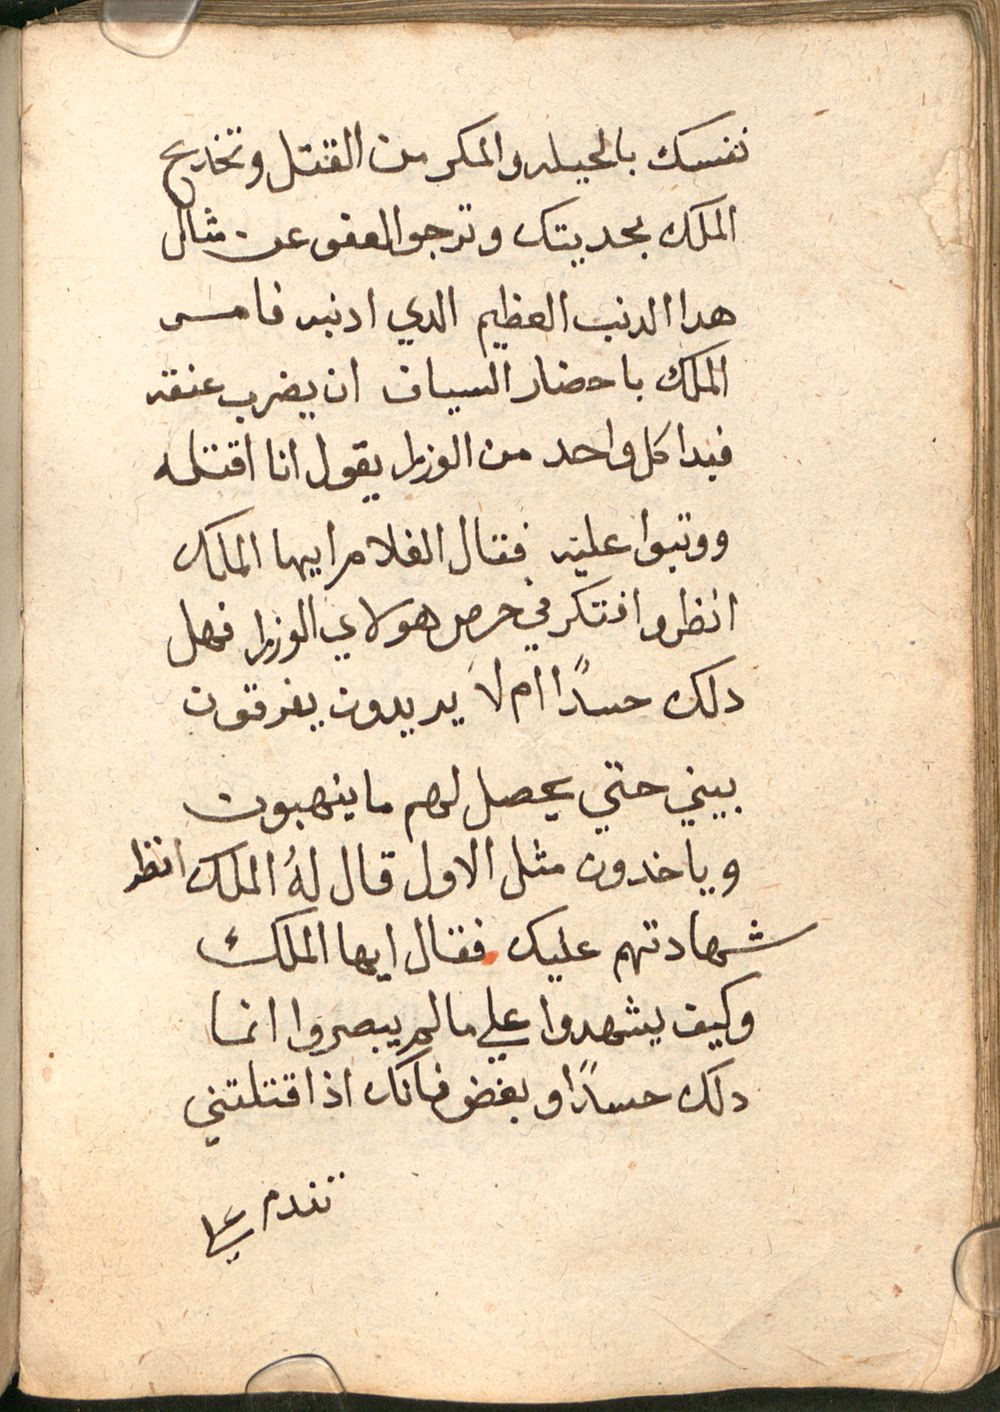 نفسك بالحيله والمكر من القتل وتخدع
الملك بحديتك وترجو العفو عن مثال
هدا الدنب العظيم الدي ادنبه فامر
الملك باحضار السياف ان يضرب عنقه
فبدا كل واحد من الوزرا يقول انا اقتله
ووتبوا عليه فقال الغلام ايها الملك
انظر وافتكر في حرص هولاي الوزرا فهل
دلك حسدًا ام لا يريدون يفرقون
بيني حتي يحصل لهم ما ينهبون
وياخدون مثل الاول قال لهُ الملك انظر
شهادتهم عليك فقال ايها الملك
وكيف يشهدوا علي ما لم يبصروا انما
دلك حسدًا وبغض فانك اذا قتلتني
تندم علي